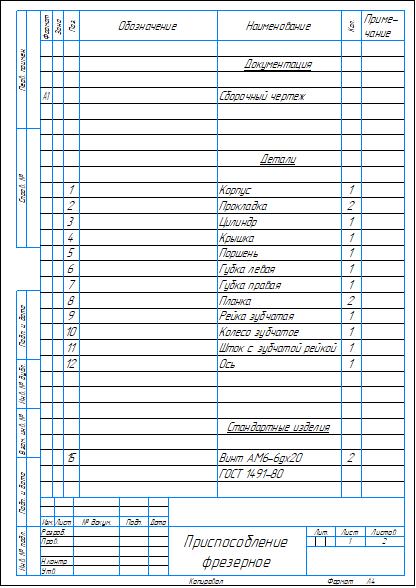 Формат Зона Поз. Обозначение Наименование Кол. Приме-
чание
Перв. примен.
Документация
А1 Сборочный чертеж
Справ. №
Детали
1 Корпус 1
2 Прокладка 2
3 Цилиндр 1
4 Крышка 1
5 Поршень 1
6 Губка левая 1
7 Губка правая 1
8 Планка 2
9 Рейка зубчатая 1
10 Колесо зубчатое 1
11 Шток с зубчатой рейкой 1
12 Ось 1
Подп. и дата
Инв. № дубл.
Взам. инв. №
Подп. и дата
Инв. № подл.
Стандартные изделия
15 Винт А.М6-6gx20 2
ГОСТ 1491-80
Изм. Лист № докум. Подп. Дата
Разраб.
Пров.
Н.контр.
Утв.
Приспособление
фрезерное
Лит. Лист Листов
1 2
Копировал Формат А4